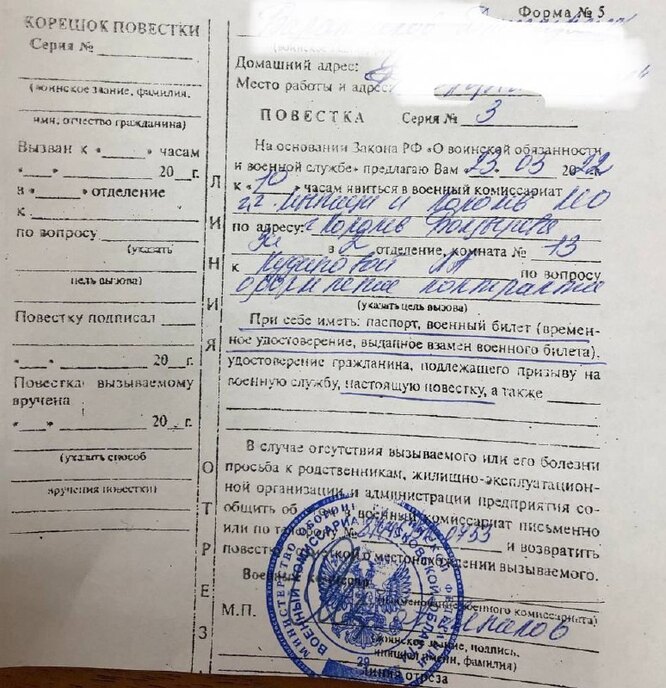 Форма № 5
КОРЕШОК ПОВЕСТКИ
Серия № ______
(воинское звание, фамилия,
имя, отчество гражданина)
Вызван к «____» часам
«__» ______ 20__г.
в «____» отделение
к ______
по вопросу ______
(указать
цель вызова)
Повестку подписал ____
«__» ______ 20__г.
Повестка вызываемому
вручена ______
«__» ______ 20__г.
(указать способ
вручения повестки)
ЛИНИЯ ОТРЕЗ
Домашний адрес:
Место работы и адрес
ПОВЕСТКА Серия № 3
На основании Закона РФ «О воинской обязанности
и военной службе» предлагаю Вам 23.03 2022
к «10» часам явиться в военный комиссариат
и Королёв МО
по адресу: г. Королёв Болдырева
в 2 отделение, комната № 13
к по вопросу
оформление контракта
(указать цель вызова)
При себе иметь: паспорт, военный билет (времен-
ное удостоверение, выданное взамен военного билета),
удостоверение гражданина, подлежащего призыву на
военную службу, настоящую повестку, а также
В случае отсутствия вызываемого или его болезни
просьба к родственникам, жилищно-эксплуатацион-
ной организации и администрации предприятия со-
общить об в военный комиссариат письменно
или по 0753 и возвратить
о местонахождении вызываемого.
Военный комиссар
(наименование военного комиссариата)
М.П.
(воинское звание, подпись,
инициал имени, фамилия)
Линия отреза
МИНИСТЕРСТВО ОБОРОНЫ
ВОЕННЫЙ КОМИССАРИАТ